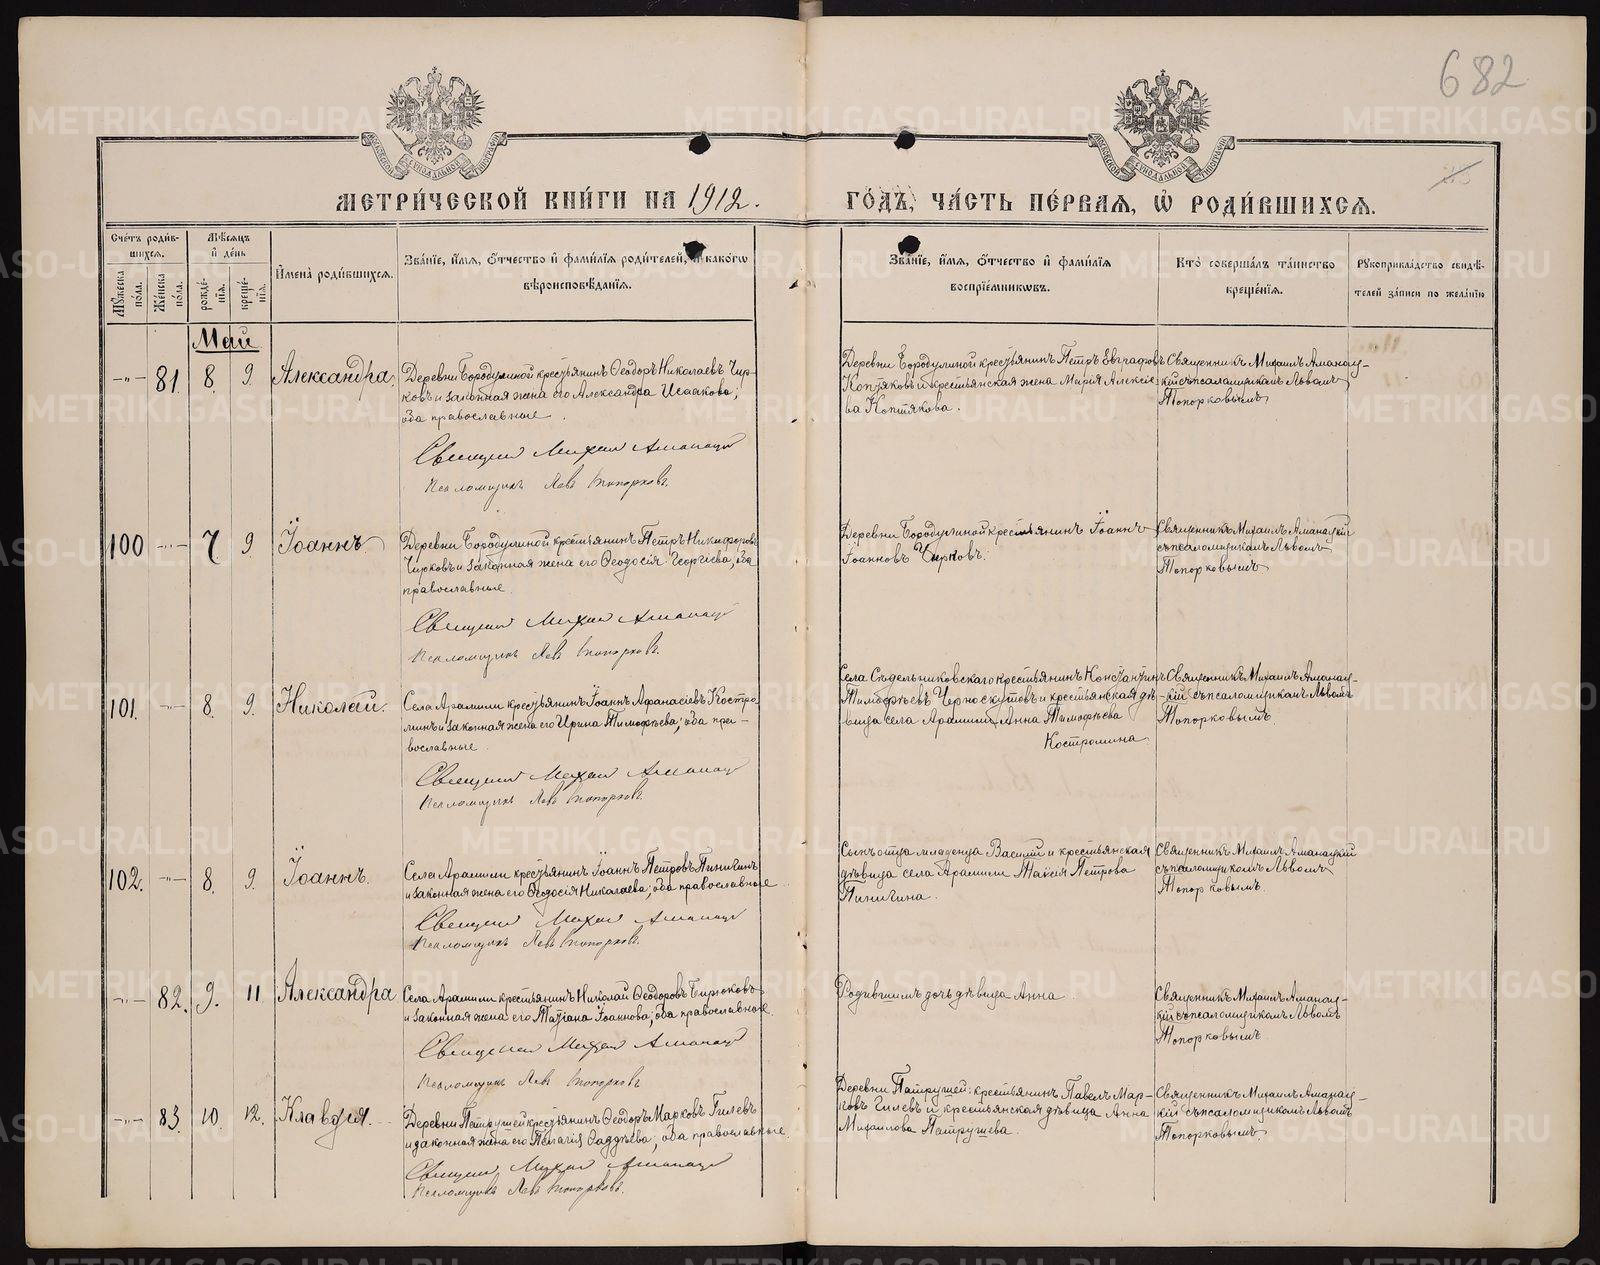 682
МОСКОВСКОЙ СУНОДАЛЬНОЙ ТИПОГРАФІИ
МОСКОВСКОЙ СУНОДАЛЬНОЙ ТИПОГРАФІИ
МЕТРИ́ЧЕСКОЙ КНИ́ГИ НА 1912. ГО́ДЪ, ЧА́СТЬ ПЕ́РВАЯ, Ѡ РОДИ́ВШИХСЯ.
Сче́тъ роди́в-
шихся.
Мꙋ́жеска по́ла.
Же́нска по́ла.
Мѣ́сяцъ
и҆ де́нь
рожде́-
нїя.
креще́-
нїя.
И҆мена̀ роди́вшихся.
Зва́нїе, и҆́мя, ѻ҆́тчество и҆ фами́лїя роди́телей, и҆ како́гѡ
вѣроисповѣ́данїя.
Зва́нїе, и҆́мя, ѻ҆́тчество и҆ фами́лїя
воспрїе́мникѡвъ.
Кто̀ соверша́лъ та́инство
креще́нїя.
Рꙋкоприкла́дство свидѣ́-
телей за́писи по жела́нїю
Май
-„- 81 8. 9. Александра.
Деревни Бородулиной крестьянинъ Ѳеодоръ Николаевъ Чир-
ковъ и законная жена его Александра Исаакова;
оба православные.
Священникъ Михаил Аманацкій
Псаломщикъ Левъ Топорковъ.
Деревни Бородулиной крестьянинъ Петръ Евграфовъ
Коптяковъ и крестьянская жена Марія Алексіе-
ва Коптякова.
Священникъ Михаилъ Аманац-
кій съ псаломщикомъ Львомъ
Топорковымъ
100 -„- 7 9 Іоаннъ.
Деревни Бородулиной крестьянинъ Петръ Никифоровъ
Чирковъ и законная жена его Ѳеодосія Георгіева; оба
православные.
Священникъ Михаил Аманацкій
Псаломщикъ Левъ Топорковъ.
Деревни Бородулиной крестьянинъ Іоаннъ
Іоанновъ Чирковъ.
Священникъ Михаилъ Аманацкій
съ псаломщикомъ Львомъ
Топорковымъ
101. -„- 8. 9. Николай.
Села Арамили крестьянинъ Іоаннъ Аѳанасіевъ Костро-
минъ и законная жена его Ирина Тимоѳѣева; оба пра-
вославные.
Священникъ Михаил Аманацкій
Псаломщикъ Левъ Топорковъ.
Села Сѣдельниковскаго крестьянинъ Константинъ
Тимоѳѣевъ Черноскутовъ и крестьянская дѣ-
вица села Арамили Анна Тимоѳѣева
Костромина.
Священникъ Михаилъ Аманац-
кій съ псаломщикомъ Львомъ
Топорковымъ.
102. -„- 8. 9. Іоаннъ.
Села Арамили крестьянинъ Іоаннъ Петровъ Пинигинъ
и законная жена его Ѳеодосія Николаева; оба православные
Священникъ Михаил Аманацкій
Псаломщикъ Левъ Топорковъ.
Сынъ отца младенца Василій и крестьянская
дѣвица села Арамили Таисія Петрова
Пинигина.
Священникъ Михаилъ Аманацкій
съ псаломщикомъ Львомъ
Топорковымъ.
-„- 82. 9. 11 Александра
Села Арамили крестьянинъ Николай Ѳеодоровъ Бирюковъ
и законная жена его Татіана Іоаннова; оба православные.
Священникъ Михаил Аманацкій
Псаломщикъ Левъ Топорковъ
Родившимъ дочь дѣвица Анна.
Священникъ Михаилъ Аманац-
кій съ псаломщикомъ Львомъ
Топорковымъ
-„- 83. 10. 12. Клавдія.
Деревни Патрушей крестьянинъ Ѳеодоръ Марковъ Гилевъ
и законная жена его Пелагія Ѳаддѣева; оба православные.
Священникъ Михаил Аманацкій
Псаломщикъ Левъ Топорковъ.
Деревни Патрушей: крестьянинъ Павелъ Мар-
ковъ Гилевъ и крестьянская дѣвица Анна
Михаилова Патрушева.
Священникъ Михаилъ Аманац-
кій съ псаломщикомъ Львомъ
Топорковымъ
METRIKI.GASO-URAL.RU